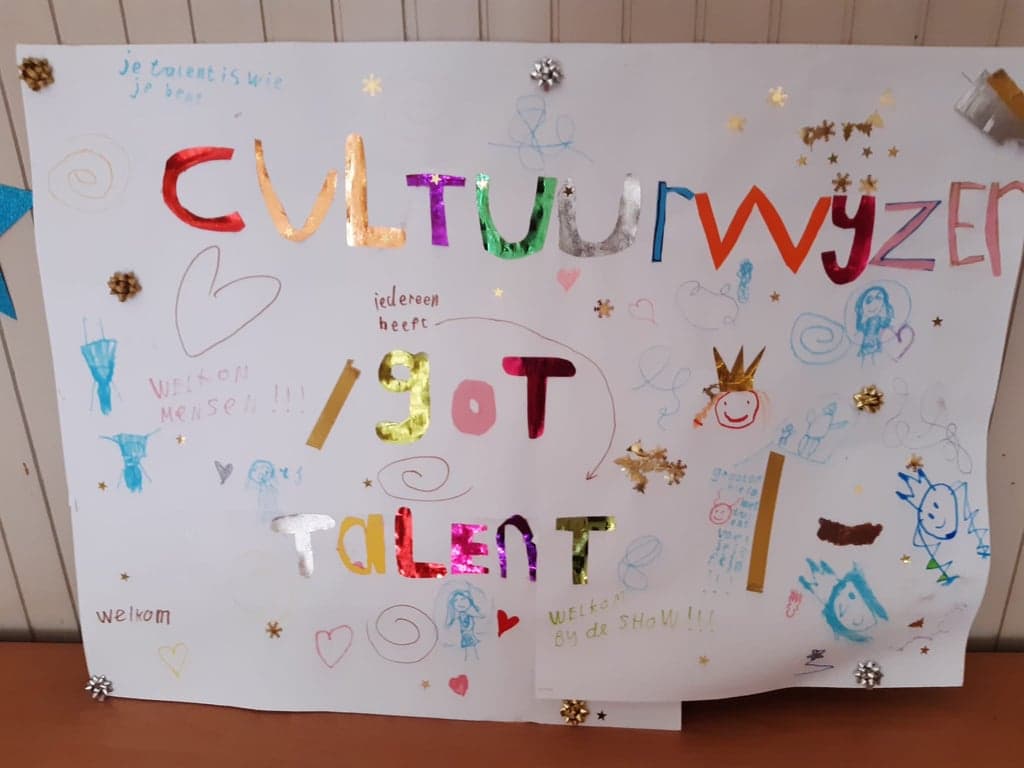 je talent is wie
je bent
CULTUURWYZER
iedereen
heeft
got
TaLEnT
WELKOM
MENSEN !!!
welkom
WELKOM
By de SHOW !!!